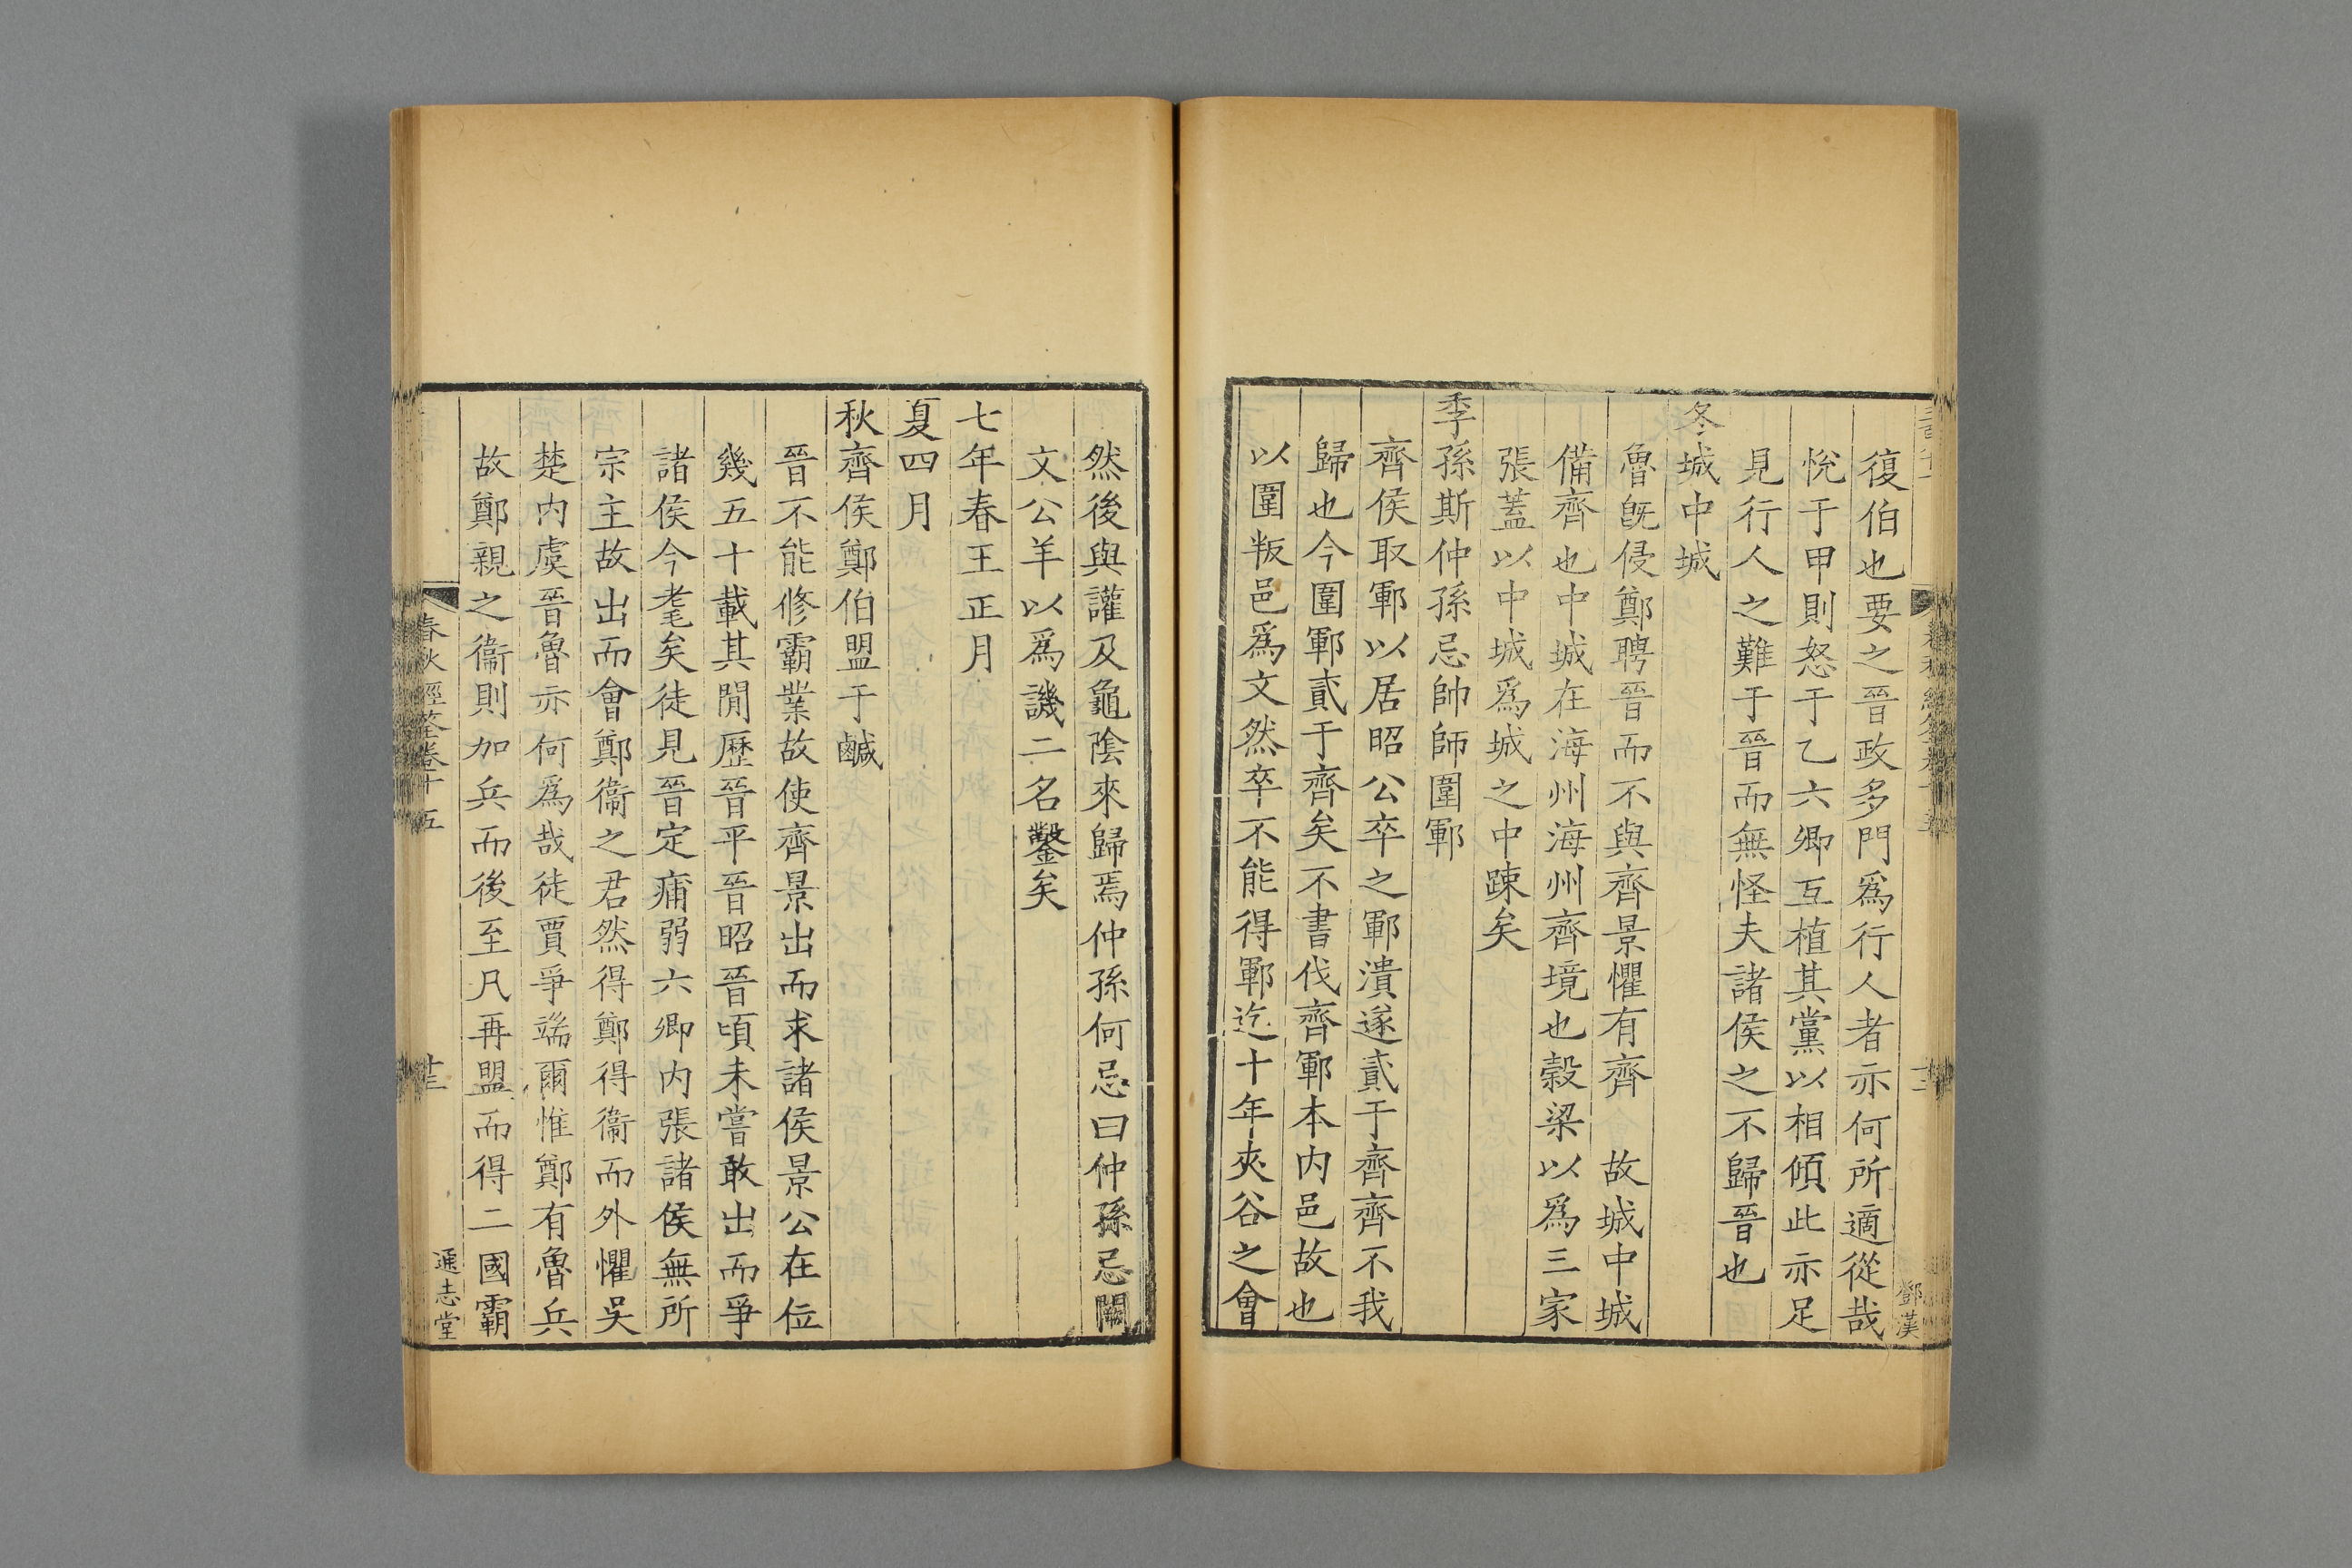 復伯也要之晉政多門爲行人者亦何所適從哉
悅于甲則怒于乙六卿互植其黨以相傾此亦足
見行人之難于晉而無怪夫諸侯之不歸晉也
冬城中城
魯旣侵鄭聘晉而不與齊景懼有齊 故城中城
備齊也中城在海州海州齊境也榖梁以爲三家
張蓋以中城爲城之中踈矣
季孫斯仲孫忌帥師圍鄆
齊侯取鄆以居昭公卒之鄆潰遂貳于齊齊不我
歸也今圍鄆貳于齊矣不書伐齊鄆本内邑故也
以圍叛邑爲文然卒不能得鄆迄十年夾谷之會
鄧漢
然後與讙及龜隂來歸焉仲孫何忌曰仲孫忌闕
文公羊以爲譏二名鑿矣
七年春王正月
夏四月
秋齊侯鄭伯盟于鹹
晉不能修霸業故使齊景出而求諸侯景公在位
幾五十載其閒歷晉平晉昭晉頃未嘗敢出而爭
諸侯今耄矣徒見晉定痡弱六卿内張諸侯無所
宗主故出而會鄭衞之君然得鄭得衞而外懼吳
楚内虞晉魯亦何爲哉徒賈爭端爾惟鄭有魯兵
故鄭親之衞則加兵而後至凡再盟而得二國霸
春秋經筌卷十五
十三
通志堂